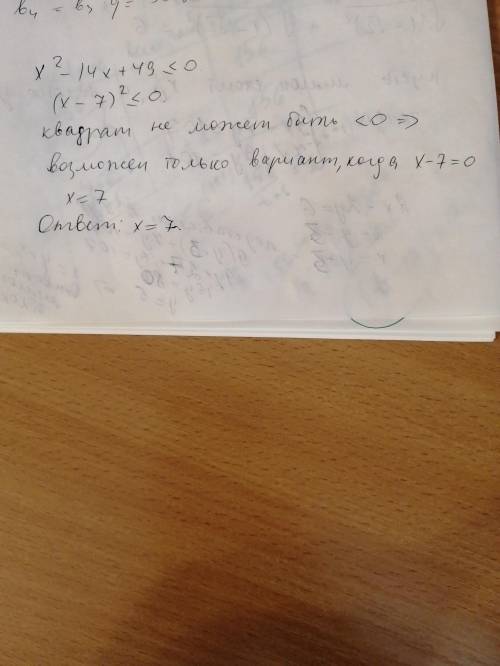 x² - 14x + 49 ≤ 0
(x - 7)² ≤ 0
квадрат не может быть < 0 ⇒
возможен только вариант, когда x - 7 = 0
x = 7
Ответ: x = 7.